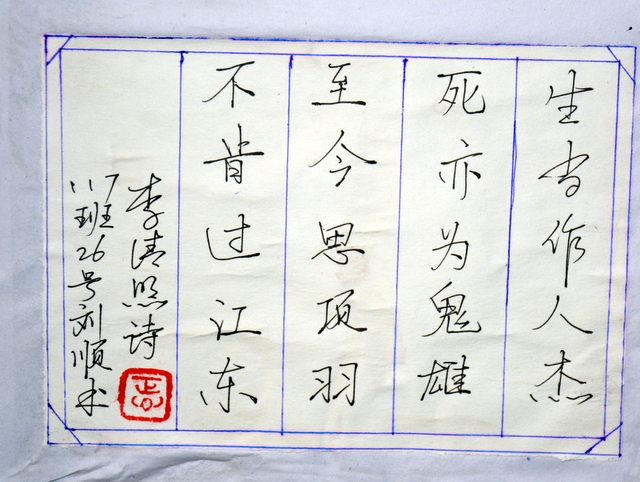 生当作人杰
死亦为鬼雄
至今思项羽
不肯过江东
李清照诗
117班26号刘顺书